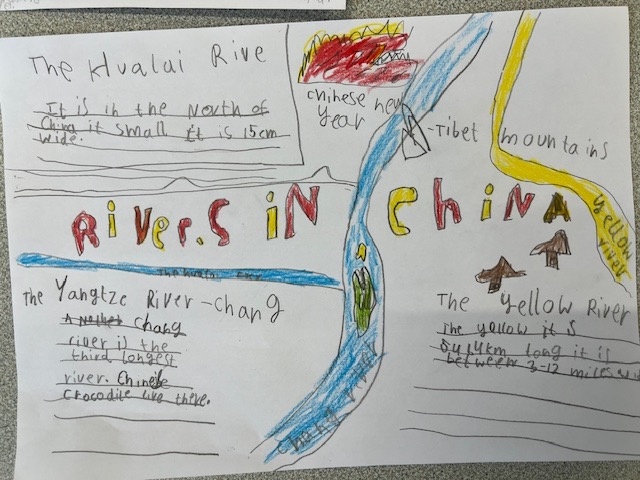 The Hualai Rive
It is in the North of
China it small it is 15cm
wide.
chinese new
year
Tibet mountains
Rivers in China
Yellow
river
The Yangtze River-chang
A Nother chang
river is the
third longest
river. Chinese
Crocodile live there.
The Yellow River
The yellow it is
5414km long it is
between 3-12 miles
chang river